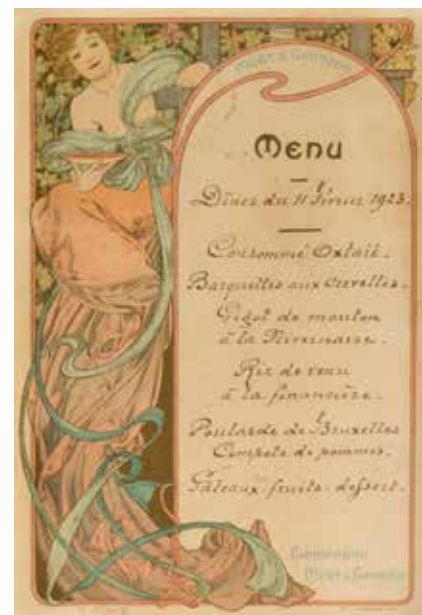 MOËT & CHANDON
Menu
Dîner du 11 Février 1923.
Consommé Oxtail.
Barquettes aux Crevettes.
Gigot de mouton
à la Nivernaise.
Riz de veau
à la financière.
Poularde de Bruxelles
Compote de pommes.
Gâteaux. fruits. dessert.
CHAMPAGNE
MOËT & CHANDON